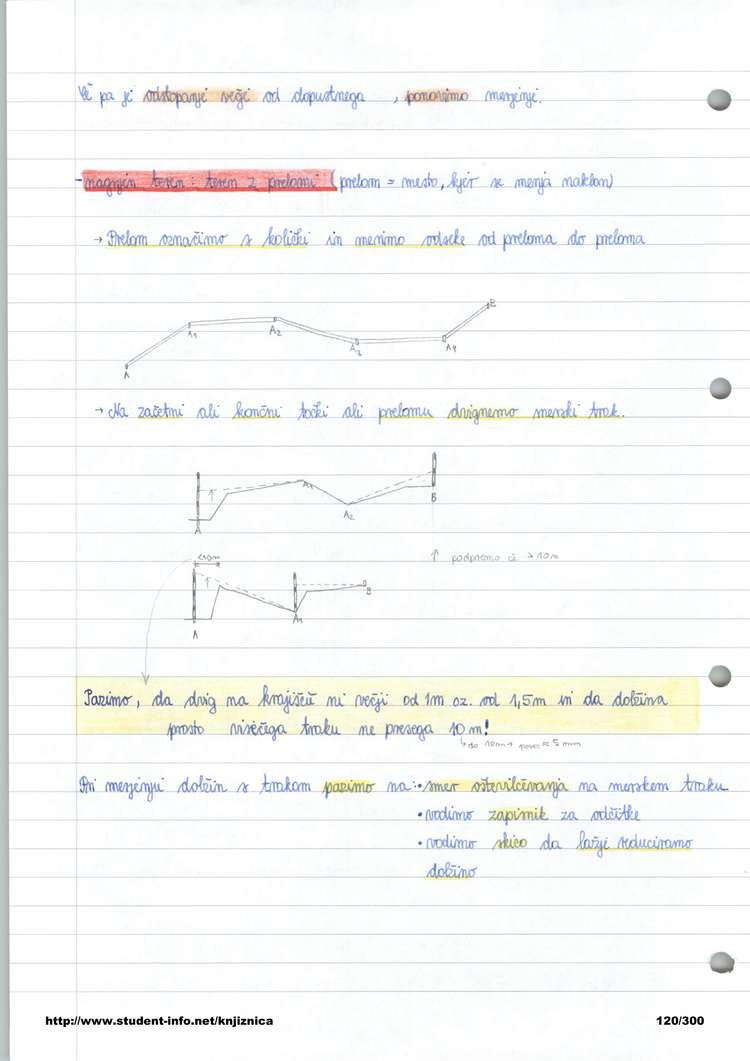 Če pa je odstopanje večje od dopustnega , ponovimo merjenje.
- nagnjen teren: teren z prelomi (prelom = mesto, kjer se menja naklon)
→ Prelom označimo s količki in merimo odseke od preloma do preloma
B
A1 A2
A3 A4
A
→ Na začetni ali končni točki ali prelomu dvignemo merski trak.
A1
B
A2
A
<10m
↑ podpremo če > 10m
B
A1
A
Pazimo, da dvig na krajišču ni večji od 1m oz. od 1,5m in da dolžina
prosto visečega traku ne presega 10m!
↳ do 10m → poves ≈ 5 mm
Pri merjenju dolžin s trakom pazimo na: • smer oštevilčevanja na merskem traku
• vodimo zapisnik za odčitke
• vodimo skico da lažje reduciramo
dolžino
http://www.student-info.net/knjiznica 120/300